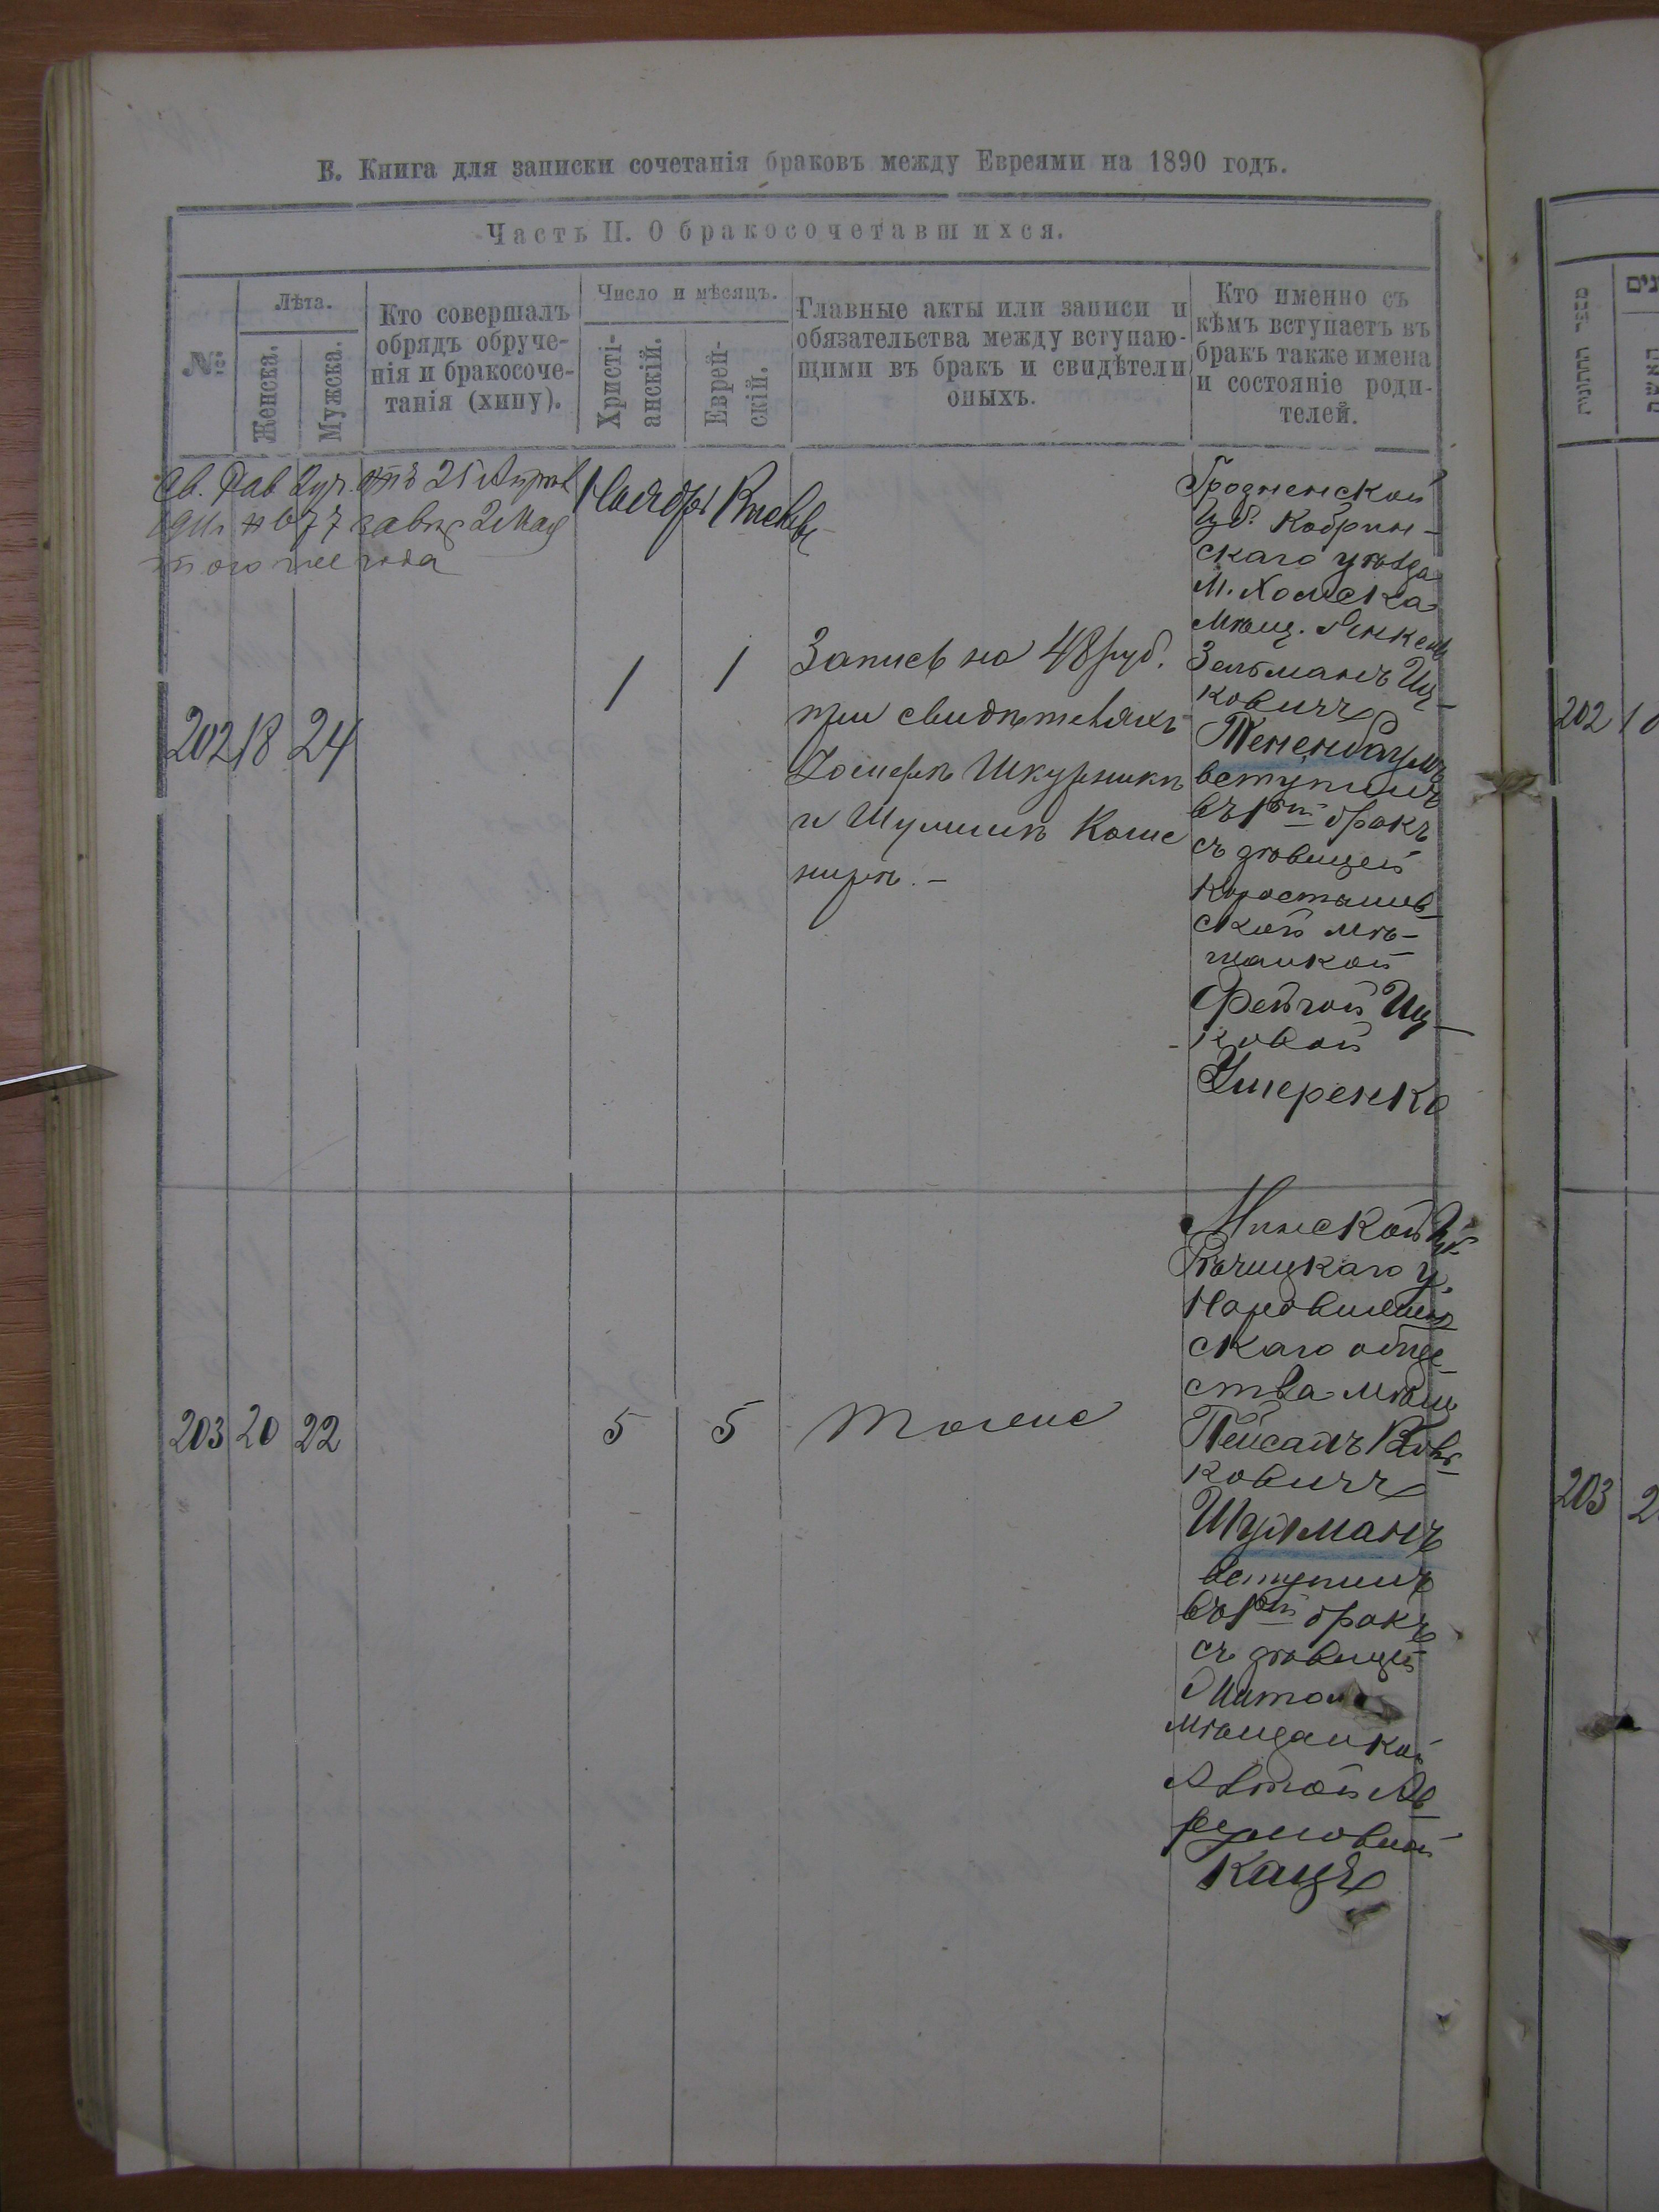 В. Книга для записки сочетанія браковъ между Евреями на 1890 годъ.
Часть II. О бракосочетавшихся.
№
Лѣта.
Женска.
Мужска.
Кто совершалъ
обрядъ обруче-
нія и бракосоче-
танія (хипу).
Число и мѣсяцъ.
Христі-
анскій.
Еврей-
скій.
Главные акты или записи и
обязательства между вступаю-
щими въ бракъ и свидѣтели
оныхъ.
Кто именно съ
кѣмъ вступаетъ въ
бракъ также имена
и состояніе роди-
телей.
отъ 21 Апрѣля
№ 677 2 Мая
того же года
Ноября
202 18 24
1 1
Запись на 48 руб.
при свидѣтеляхъ
Шкурникъ
и
Гродненской
Губ. Кобрин-
скаго уѣзда
М. Хомска
Мѣщ. Янкель
Зельманъ Иц-
ковичъ
Тененбаумъ
вступилъ
въ 1ый бракъ
съ дѣвицей
Коростышев-
ской мѣ-
щанкой
Фейгой Иц-
ковой
Ушеренко
203 20 22
5 5
тоже
Минской Губ.
Рѣчицкаго у.
Наровлян
скаго обще-
ства мѣщ.
Пейсахъ
ковичъ
Шульманъ
вступилъ
въ 1ый бракъ
съ дѣвицей
Житом
мѣщанкой
Кацъ
202
203